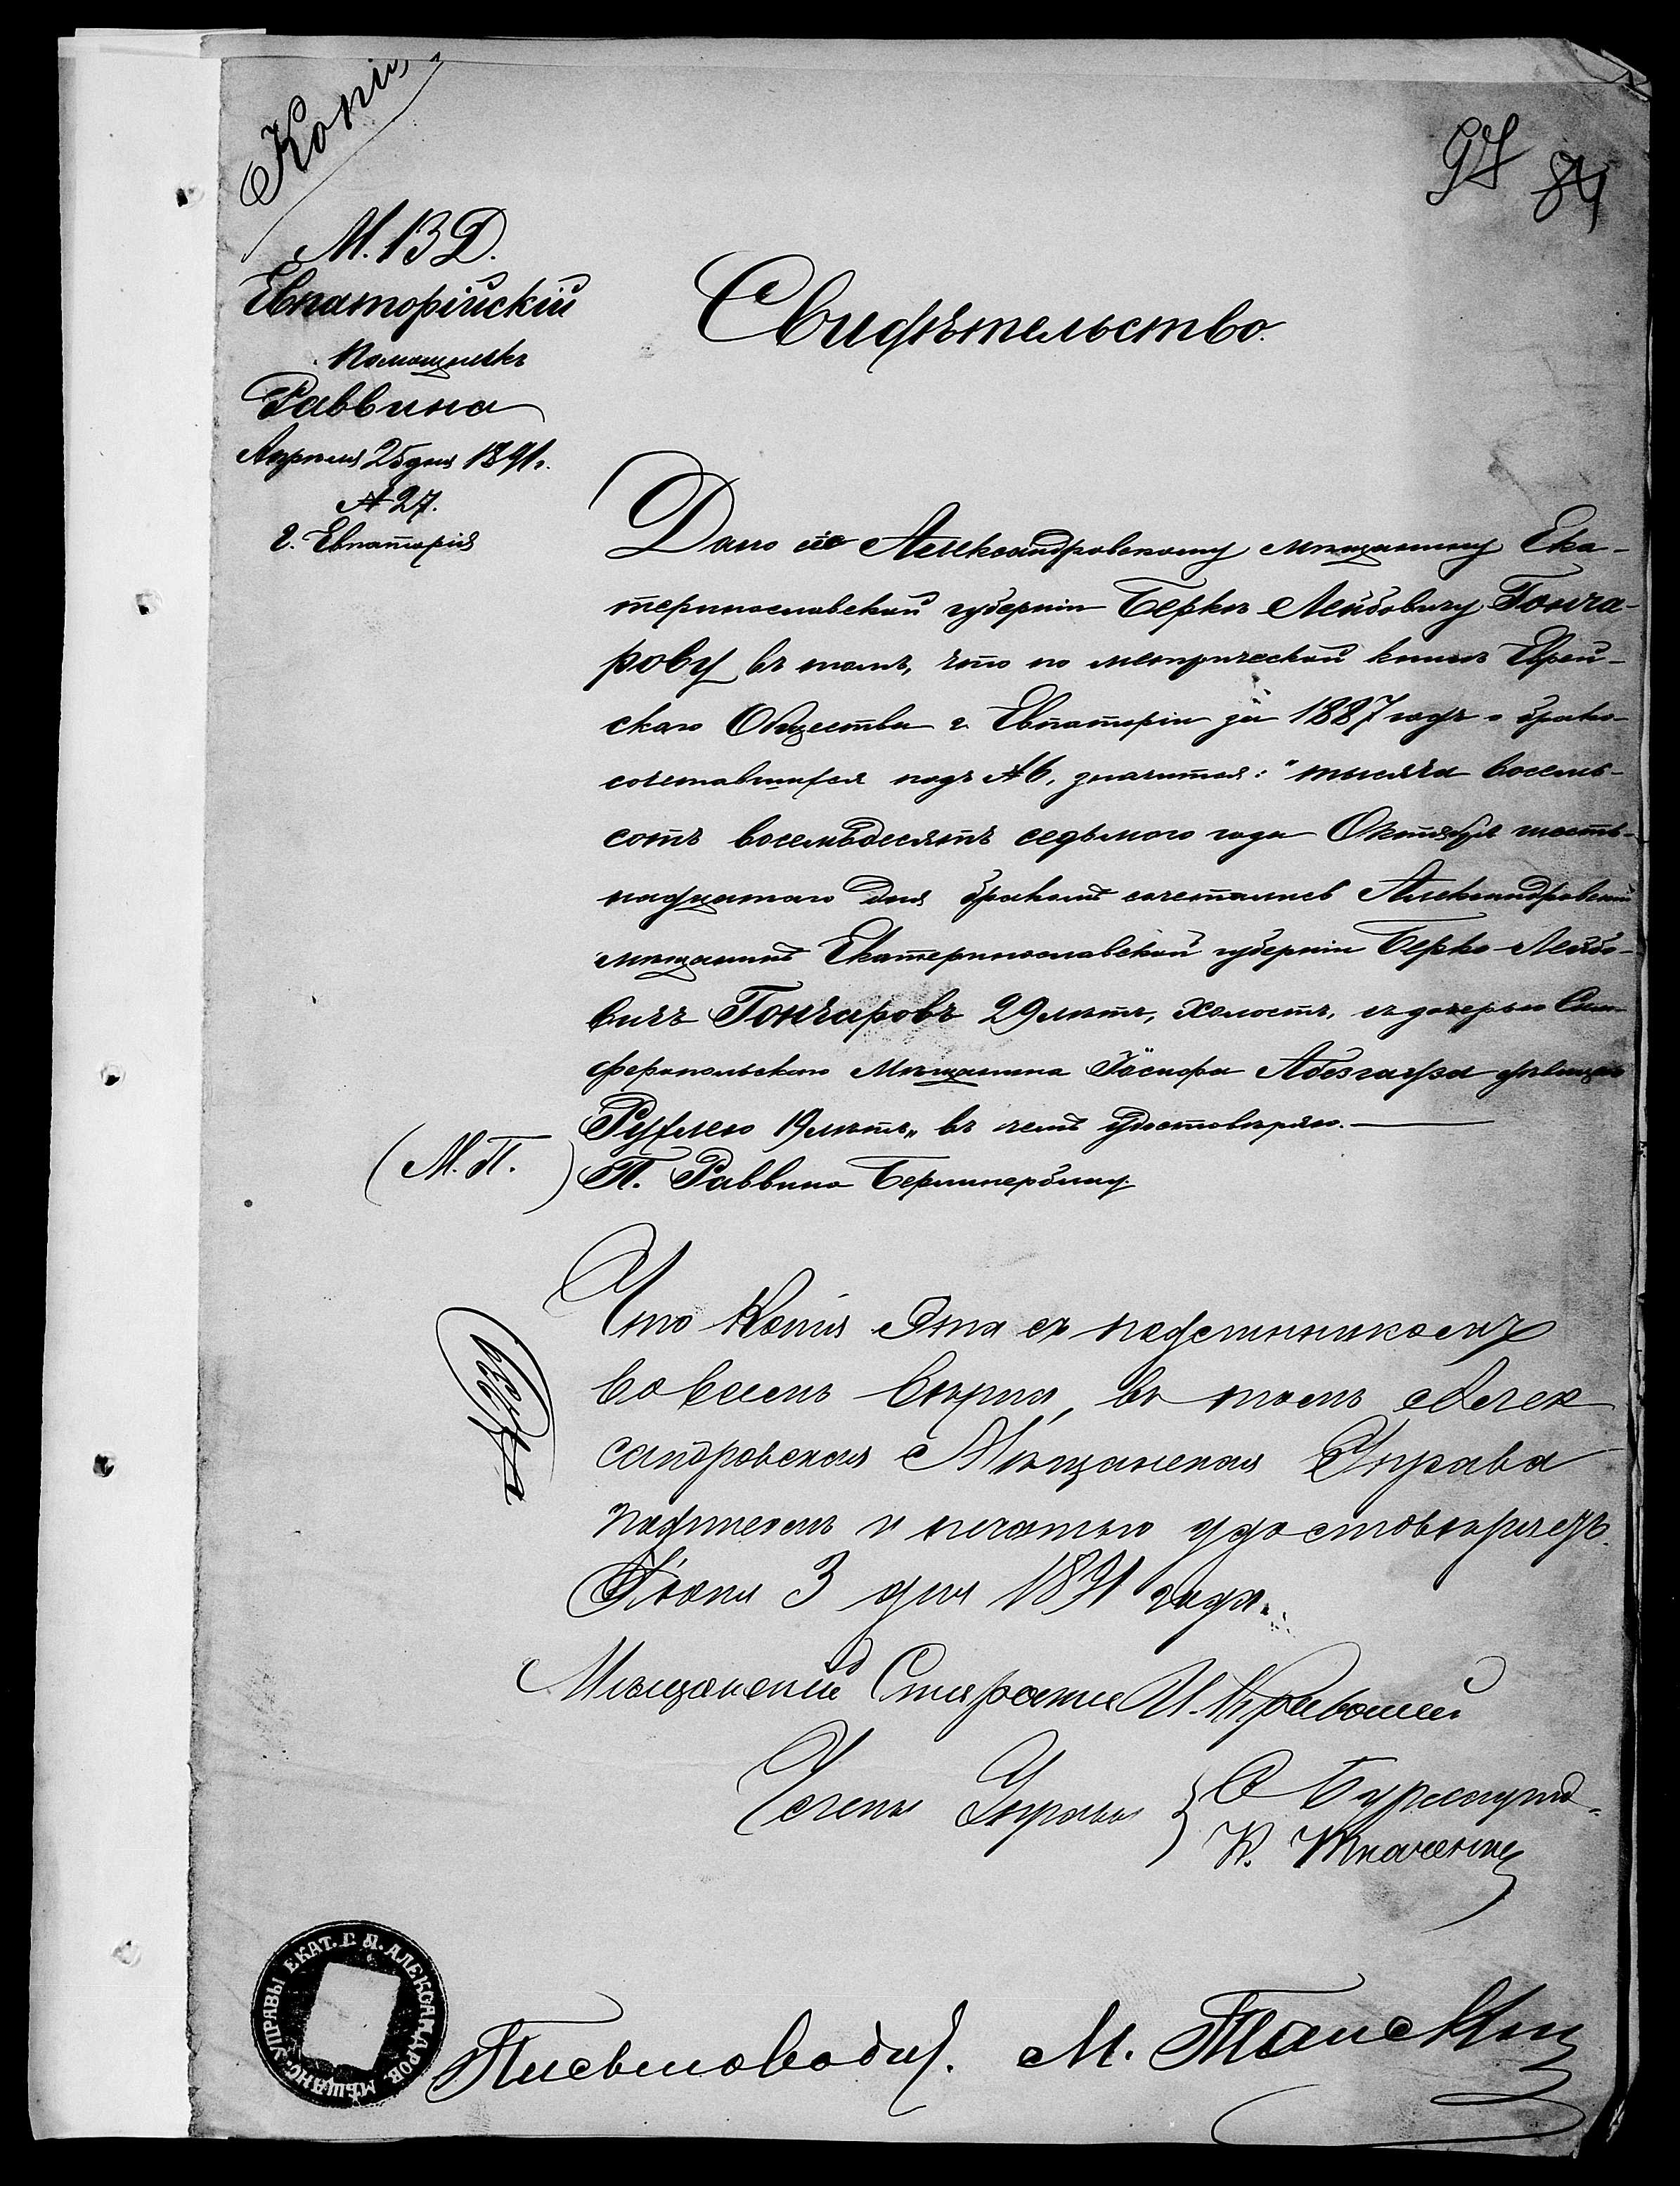 Копія
97 84
М.В.Д.
Евпаторійскій
Помощникъ
Раввина
Апрѣля 25 дня 1891 г.
№ 27.
г. Евпаторія
Свидѣтельство.
Дано сіе Александровскому мѣщанину Ека-
теринославской губерніи Беркѣ Лейбовичу Гонча-
рову въ томъ, что по метрической книгѣ Еврей-
скаго Общества г. Евпаторіи за 1887 годъ о брако-
сочетавшихся подъ № 6, значится: "тысяча восемь-
сотъ восемьдесятъ седьмого года Октября шест-
надцатаго дня бракомъ сочетались Александровскій
мѣщанинъ Екатеринославской губерніи Берко Лейбо-
вичъ Гончаровъ 29 лѣтъ, холостъ, съ дочерью Сим-
феропольскаго Мѣщанина Іосифа Абезгауза дѣвицею
Рухлею 19 лѣтъ„ въ чемъ удостовѣряю.
(М.П.) П. Раввина
Что копія эта съ подлинникомъ
во всемъ вѣрна, въ томъ Алек
сандровская Мѣщанская Управа
подписомъ и печатью удостовѣряетъ.
Іюня 3 дня 1891 года.
Мѣщанскій Староста И.
Члены Управы
К. Ткаченко
Письмоводит. М.
МѢЩАНС. УПРАВЫ ЕКАТ. Г. АЛЕКСАНДРОВ.